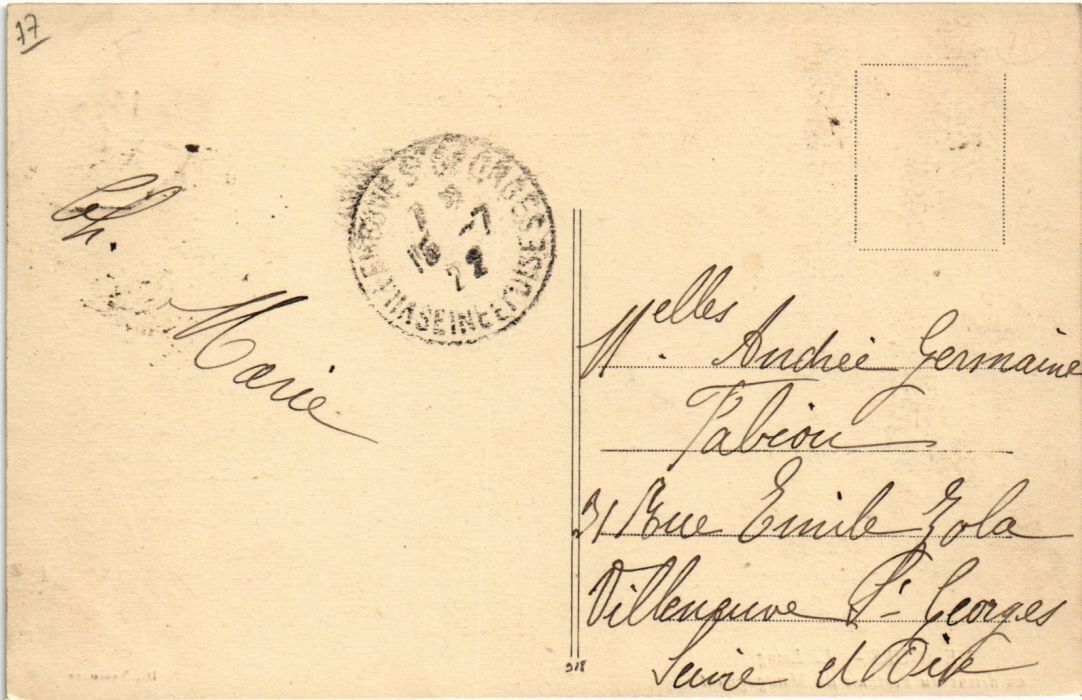 77
Ch. Marie
VILLENEUVE ST GEORGES
7 -7
22
SEINE ET OISE
Melles Andrée Germaine
Fabion
31 Rue Emile Zola
Villeneuve St- Georges
Seine et Oise
918